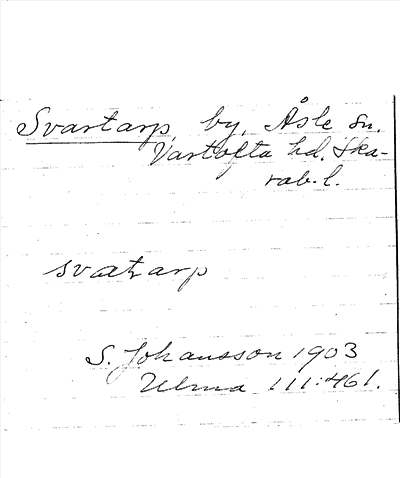 Svartarp, by, Åsle sn.
Vartofta hd. Ska-
rab. l.
svatarp
S. Johansson 1903
Ulma 111:461.